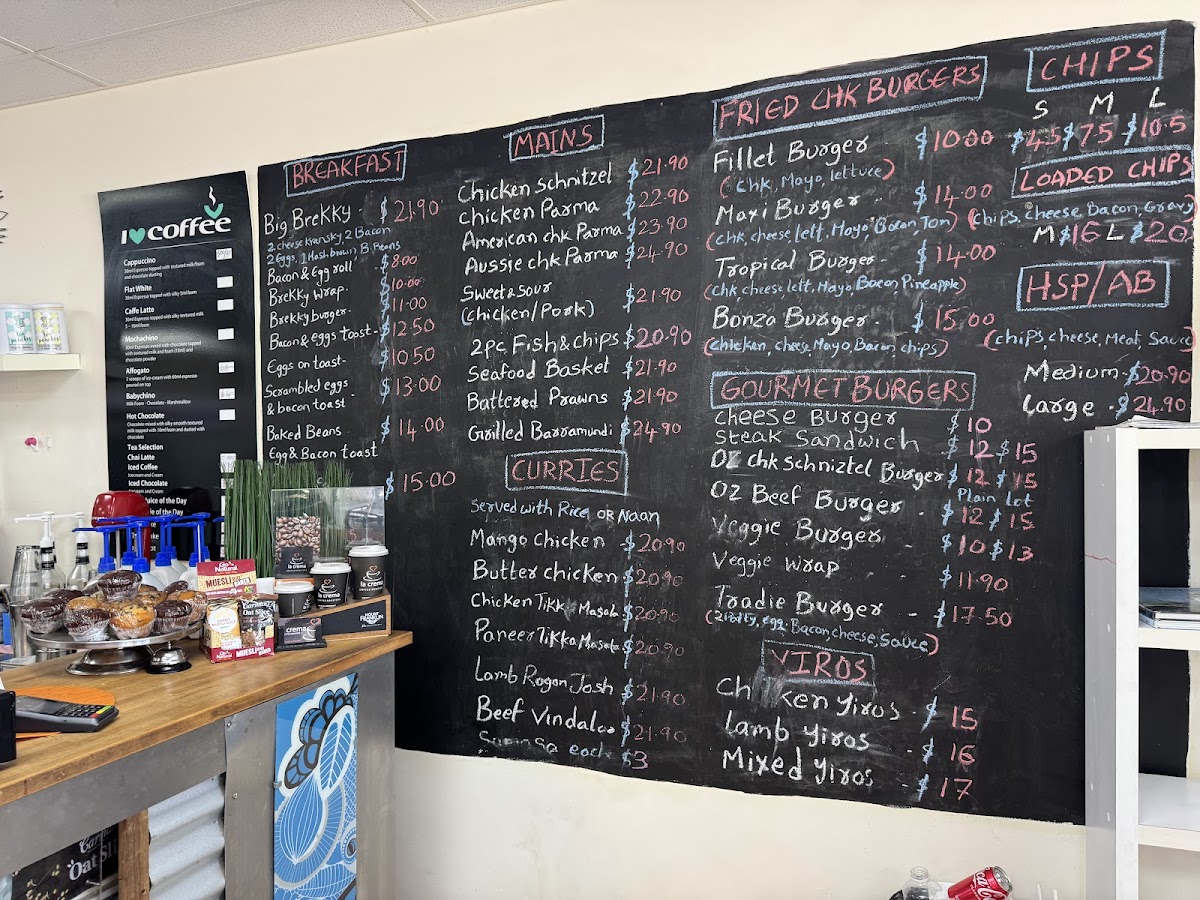 I coffee
Cappuccino
Flat White
Caffe Latte
Mochachino
Affogato
Babychino
Milk Foam - Chocolate - Marshmallow
Hot Chocolate
Tea Selection
Chai Latte
Iced Coffee
Icecream and Cream
Iced Chocolate
Juice of the Day
BREAKFAST
Big BreKKy - $21.90
2 cheese Kransky, 2 Bacon
2 Eggs, 1 Hash brown B.Beans
Bacon & Egg roll - $8.00
BreKKy wrap - $10.00
Brekky burger - $11.00
Bacon & eggs toast - $12.50
Eggs on toast - $10.50
Scrambled eggs
& bacon toast - $13.00
Baked Beans $14.00
Egg & Bacon toast
$15.00
MAINS
Chicken schnitzel $21.90
Chicken Parma $22.90
American chk Parma $23.90
Aussie chk Parma $24.90
Sweet & sour
(chicken/Pork) $21.90
2pc Fish & chips $20.90
Seafood Basket $21.90
Battered Prawns $21.90
Grilled Barramundi $24.90
CURRIES
Served with Rice, OR Naan
Mango Chicken - $20.90
Butter chicken $20.90
Chicken Tikka Masala $20.90
Paneer Tikka Masala $20.90
Lamb Rogan Josh $21.90
Beef Vindaloo $21.90
Samosa each $3
FRIED CHK BURGERS
Fillet Burger - $10.00
(chk, Mayo, lettuce)
Maxi Burger - $14.00
(chk, cheese, lett, Mayo, Bacon, Tom)
Tropical Burger - $14.00
(chk, cheese, lett, Mayo, Bacon, Pineapple)
Bonza Burger - $15.00
(chicken, chees, Mayo, Bacon, chips)
GOURMET BURGERS
Cheese Burger $10
Steak Sandwich $12 $15
OZ chk schniztel Burger $12 $15
Plain Lot
OZ Beef Burger - $12 $15
Veggie Burger - $10 $13
Veggie wrap - $11.90
Tradie Burger - $17.50
(2 Patty, egg, Bacon, cheese, Sauce)
YIROS
Chicken Yiros - $15
Lamb Yiros - $16
Mixed Yiros - $17
CHIPS
S M L
$4.5 $7.5 $10.5
LOADED CHIPS
(chips, cheese, Bacon, Gravy)
M $16 L $20
HSP/AB
(chips, cheese, Meat, Sauce)
Medium - $20.90
Large - $24.90
Go Natural
MUESLI
la crema
la crema
crema
MOUNT FRANKLIN
Carman's
Oat Slice
Oat Sli